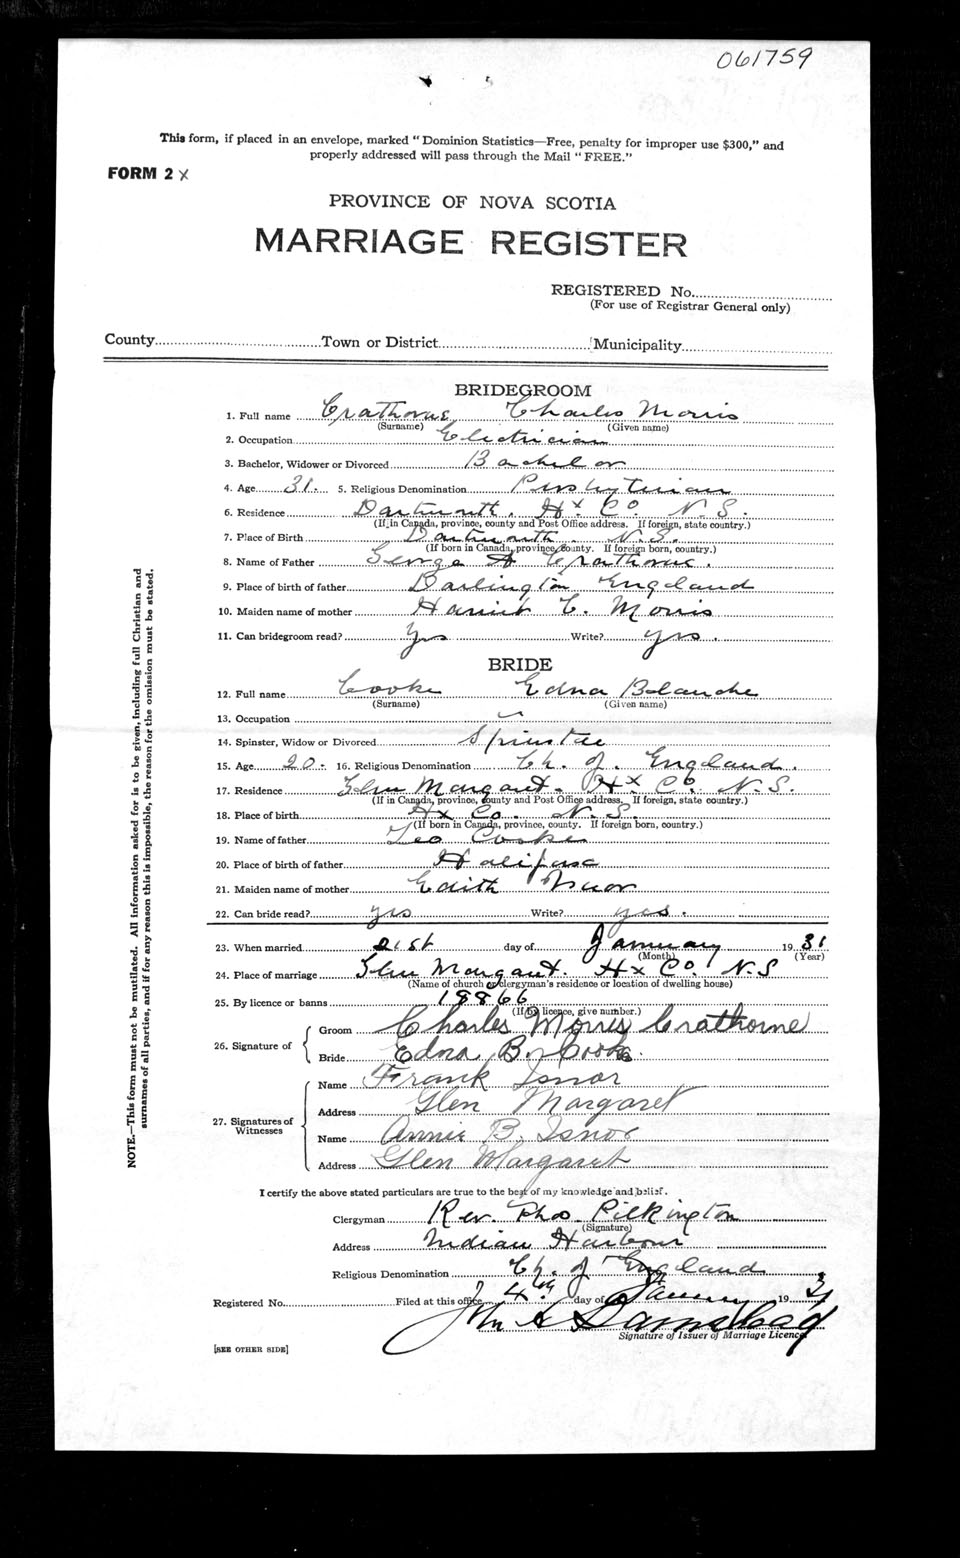 061759
This form, if placed in an envelope, marked "Dominion Statistics—Free, penalty for improper use $300," and
properly addressed will pass through the Mail "FREE."
FORM 2 x
PROVINCE OF NOVA SCOTIA
MARRIAGE REGISTER
REGISTERED No.
(For use of Registrar General only)
County Town or District Municipality
BRIDEGROOM
1. Full name Crathorne Charles Morris
(Surname) (Given name)
2. Occupation Electrician
3. Bachelor, Widower or Divorced Bachelor
4. Age 31. 5. Religious Denomination Presbyterian
6. Residence Dartmouth. Hx Co. N.S.
(If in Canada, province, county and Post Office address. If foreign, state country.)
7. Place of Birth Dartmouth. N.S.
(If born in Canada, province, county. If foreign born, country.)
8. Name of Father George A Crathorne.
9. Place of birth of father Darlington England
10. Maiden name of mother Harriet C. Morris
11. Can bridegroom read? Yes Write? yes.
BRIDE
12. Full name Cooke Edna Blanche
(Surname) (Given name)
13. Occupation
14. Spinster, Widow or Divorced Spinster
15. Age 20. 16. Religious Denomination Ch. of England.
17. Residence Glen Margaret. Hx Co. N.S.
(If in Canada, province, county and Post Office address. If foreign, state country.)
18. Place of birth Hx Co. N.S.
(If born in Canada, province, county. If foreign born, country.)
19. Name of father Leo Cooke
20. Place of birth of father Halifax
21. Maiden name of mother Edith
22. Can bride read? yes Write? yes.
23. When married 21st day of January 19 31
(Month) (Year)
24. Place of marriage Glen Margaret. Hx Co. N.S
(Name of church or clergyman's residence or location of dwelling house)
25. By licence or banns 18866
(If by licence, give number.)
26. Signature of Groom Charles Morris Crathorne
Bride Edna B. Cooke.
27. Signatures of Witnesses Name Frank Isnor
Address Glen Margaret
Name Annie B. Isnor
Address Glen Margaret
I certify the above stated particulars are true to the best of my knowledge and belief.
Clergyman Rev. Thos. Pilkington
(Signature)
Address Indian Harbour
Religious Denomination Ch. of England
Registered No. Filed at this office 4th day of 19 31
Signature of Issuer of Marriage Licence
[SEE OTHER SIDE]
NOTE.—This form must not be mutilated. All information asked for is to be given, including full Christian and
surnames of all parties, and if for any reason this is impossible, the reason for the omission must be stated.